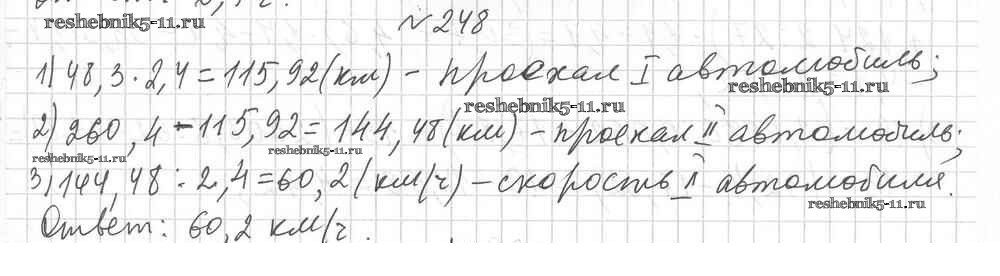 reshebnik5-11.ru
№248
1) 48,3 · 2,4 = 115,92 (км) – проехал I автомобиль;
reshebnik5-11.ru reshebnik5-11.ru
2) 260,4 – 115,92 = 144,48 (км) – проехал II автомобиль;
reshebnik5-11.ru reshebnik5-11.ru
3) 144,48 : 2,4 = 60,2 (км/ч) – скорость II автомобиля.
reshebnik5-11.ru
Ответ: 60,2 км/ч.